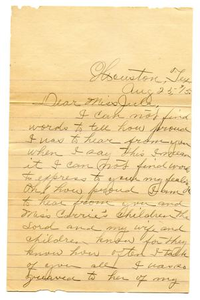 Houston, Tex
Aug 25
Dear Miss Julia,
I can not find
words to tell how proud
I was to hear from you
when I say this I mean
it I can not find words
to express to you my feelings
Oh! how proud I am
to hear from you and
Miss Carrie's Children the
Lord and my wife and
children know for they
know how often I talk
of you all I have
to her of my